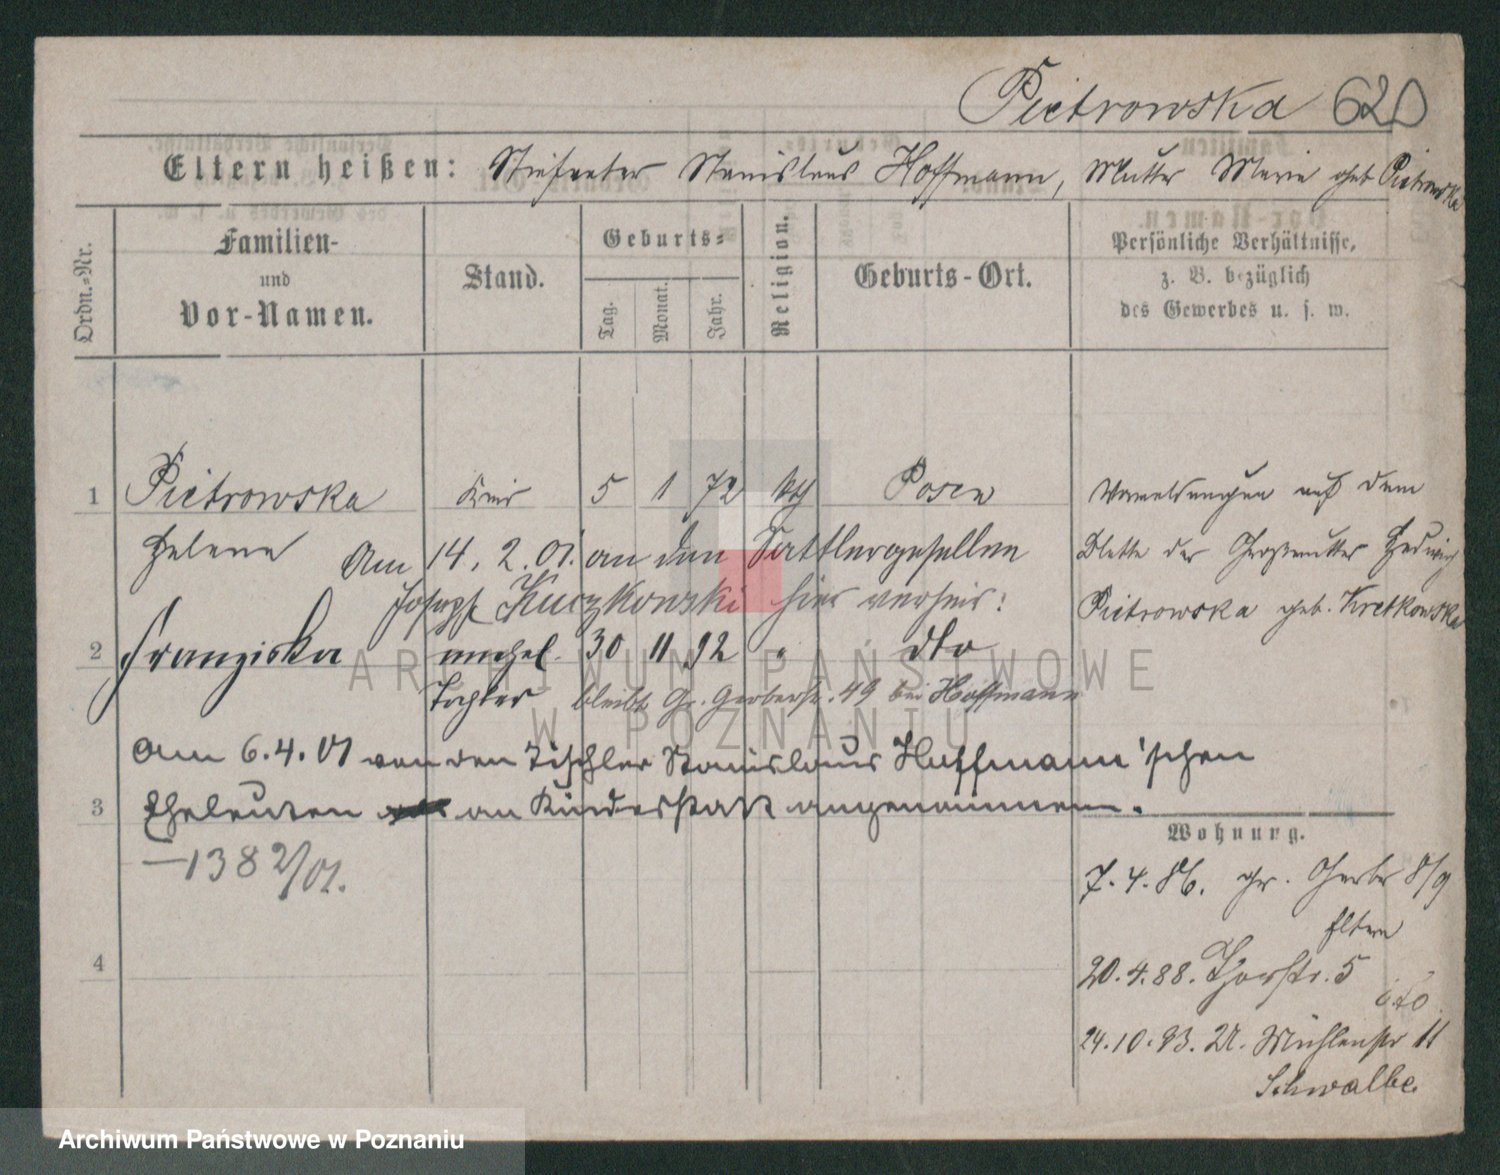 Pietrowska 620
Eltern heißen: Stiefvater Stanislaus Hoffmann, Mutter Marie geb Pietrowska
Ordn.-Nr.
Familien-
und
Vor-Namen.
Stand.
Geburts-
Tag.
Monat.
Jahr.
Religion.
Geburts-Ort.
Persönliche Verhältnisse,
z. B. bezüglich
des Gewerbes u. s. w.
1 Pietrowska 5 1 72 Posen
Helene
Am 14. 2. 01. an den Sattlergesellen
Joseph Kuczkowski hier verheir:
auf dem
Blatte der Großmutter Hedwig
Pietrowska geb. Kretkowska
2 Franziska unehel. 30 11 92 " dto
Tochter bleibt Gr. Gerberstr. 49 bei Hoffmann
Am 6.4.01 von den Tischler Stanislaus Hoffmann'schen
3 Eheleuten an Kindesstatt angenommen.
—1382/01.
4
Wohnung.
7.4.86. gr. Gerber 8/9
Eltern
20.4.88. Thorstr. 5
dto
24.10.93. U. Mühlenstr 11
Schwalbe
ARCHIWUM PAŃSTWOWE
W POZNANIU
Archiwum Państwowe w Poznaniu